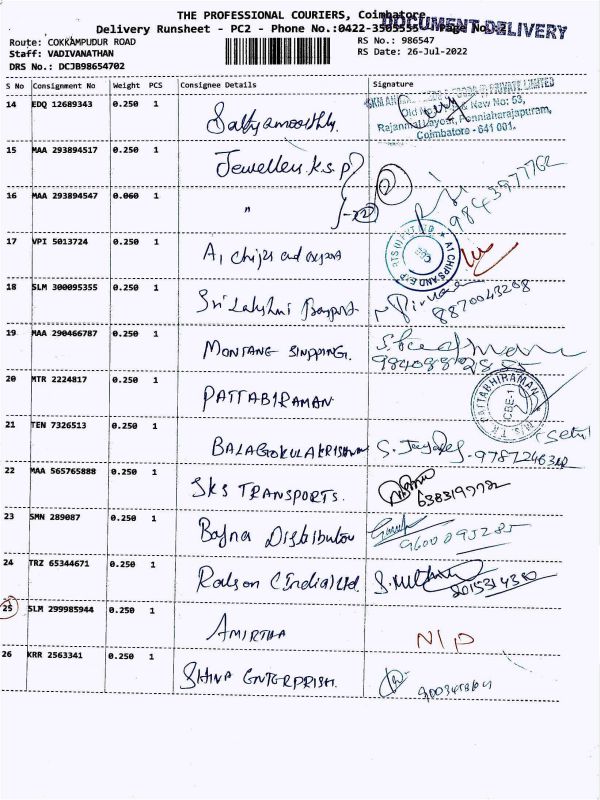 THE PROFESSIONAL COURIERS, Coimbatore
Delivery Runsheet - PC2 - Phone No.:0422-3505555 Page No.
DOCUMENT DELIVERY
Route: COKKAMPUDUR ROAD
Staff: VADIVANATHAN
DRS No.: DCJB98654702
RS No.: 986547
RS Date: 26-Jul-2022
S No Consignment No Weight PCS Consignee Details Signature
14 EDQ 12689343 0.250 1 Sathyamoorthy.
PRIVATE LIMITED
Old No. & New No: 53,
Rajannal Layout, Ponniaharajapuram,
Coimbatore - 641 001.
15 MAA 293894517 0.250 1 Jewellers K.S.P
16 MAA 293894547 0.060 1 "
9843977762
17 VPI 5013724 0.250 1 A1 chips and export
A1 CHIPS AND EXPORTS (I) PVT LTD
18 SLM 300095355 0.250 1 Sri Lakshmi Transport
8870043208
19 MAA 290466787 0.250 1 MONTANE SHIPPING.
20 MTR 2224817 0.250 1 PATTABIRAMAN
PATTABHIRAMAN
CBE-1
21 TEN 7326513 0.250 1 BALAGOKULAKRISHNAN
22 MAA 565765888 0.250 1 SKS TRANSPORTS.
6383197782
23 SMN 289087 0.250 1 Bajna Distributor
9600095285
24 TRZ 65344671 0.250 1 Ralson (India) Ltd.
25 SLM 299985944 0.250 1 AMIRTHA N/P
26 KRR 2563341 0.250 1 SHIVA ENTERPRISH.